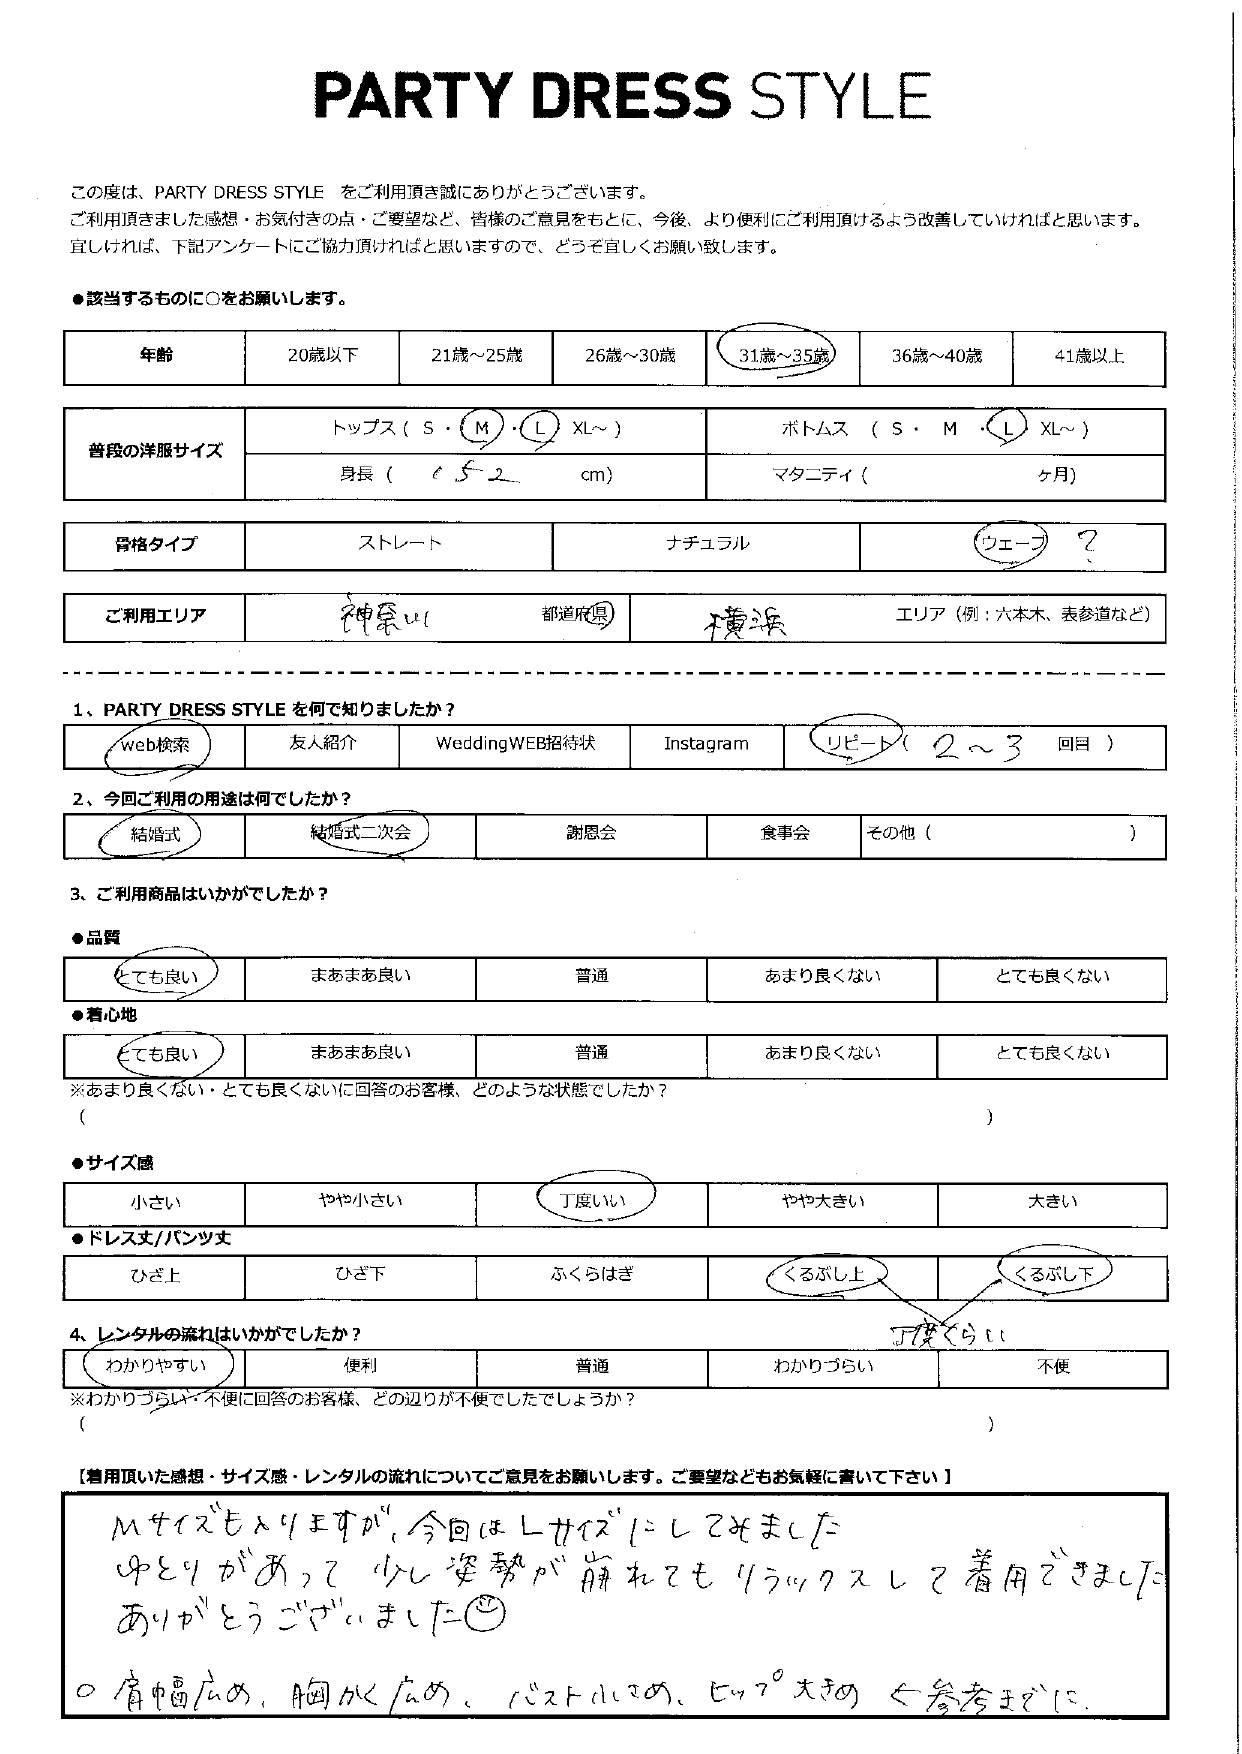 PARTY DRESS STYLE
この度は、PARTY DRESS STYLE をご利用頂き誠にありがとうございます。
ご利用頂きました感想・お気付きの点・ご要望など、皆様のご意見をもとに、今後、より便利にご利用頂けるよう改善していければと思います。
宜しければ、下記アンケートにご協力頂ければと思いますので、どうぞ宜しくお願い致します。
●該当するものに○をお願いします。
年齢 20歳以下 21歳～25歳 26歳～30歳 31歳～35歳 36歳～40歳 41歳以上
普段の洋服サイズ
トップス ( S ・ M ・ L XL～ ) ボトムス ( S ・ M ・ L XL～ )
身長 ( 152 cm) マタニティ ( ヶ月)
骨格タイプ ストレート ナチュラル ウェーブ ?
ご利用エリア 神奈川 都道府県 横浜 エリア（例：六本木、表参道など）
1、PARTY DRESS STYLE を何で知りましたか？
web検索 友人紹介 WeddingWEB招待状 Instagram リピート ( 2～3 回目 )
2、今回ご利用の用途は何でしたか？
結婚式 結婚式二次会 謝恩会 食事会 その他 ( )
3、ご利用商品はいかがでしたか？
●品質
とても良い まあまあ良い 普通 あまり良くない とても良くない
●着心地
とても良い まあまあ良い 普通 あまり良くない とても良くない
※あまり良くない・とても良くないに回答のお客様、どのような状態でしたか？
( )
●サイズ感
小さい やや小さい 丁度いい やや大きい 大きい
●ドレス丈/パンツ丈
ひざ上 ひざ下 ふくらはぎ くるぶし上 くるぶし下
丁度くらい
4、レンタルの流れはいかがでしたか？
わかりやすい 便利 普通 わかりづらい 不便
※わかりづらい・不便に回答のお客様、どの辺りが不便でしたでしょうか？
( )
【着用頂いた感想・サイズ感・レンタルの流れについてご意見をお願いします。ご要望などもお気軽に書いて下さい 】
Mサイズも入りますが、今回はLサイズにしてみました
ゆとりがあって 少し姿勢が崩れてもリラックスして着用できました
ありがとうございました☺
○ 肩幅広め、胸かく広め、バスト小さめ、ヒップ大きめ ←参考までに.